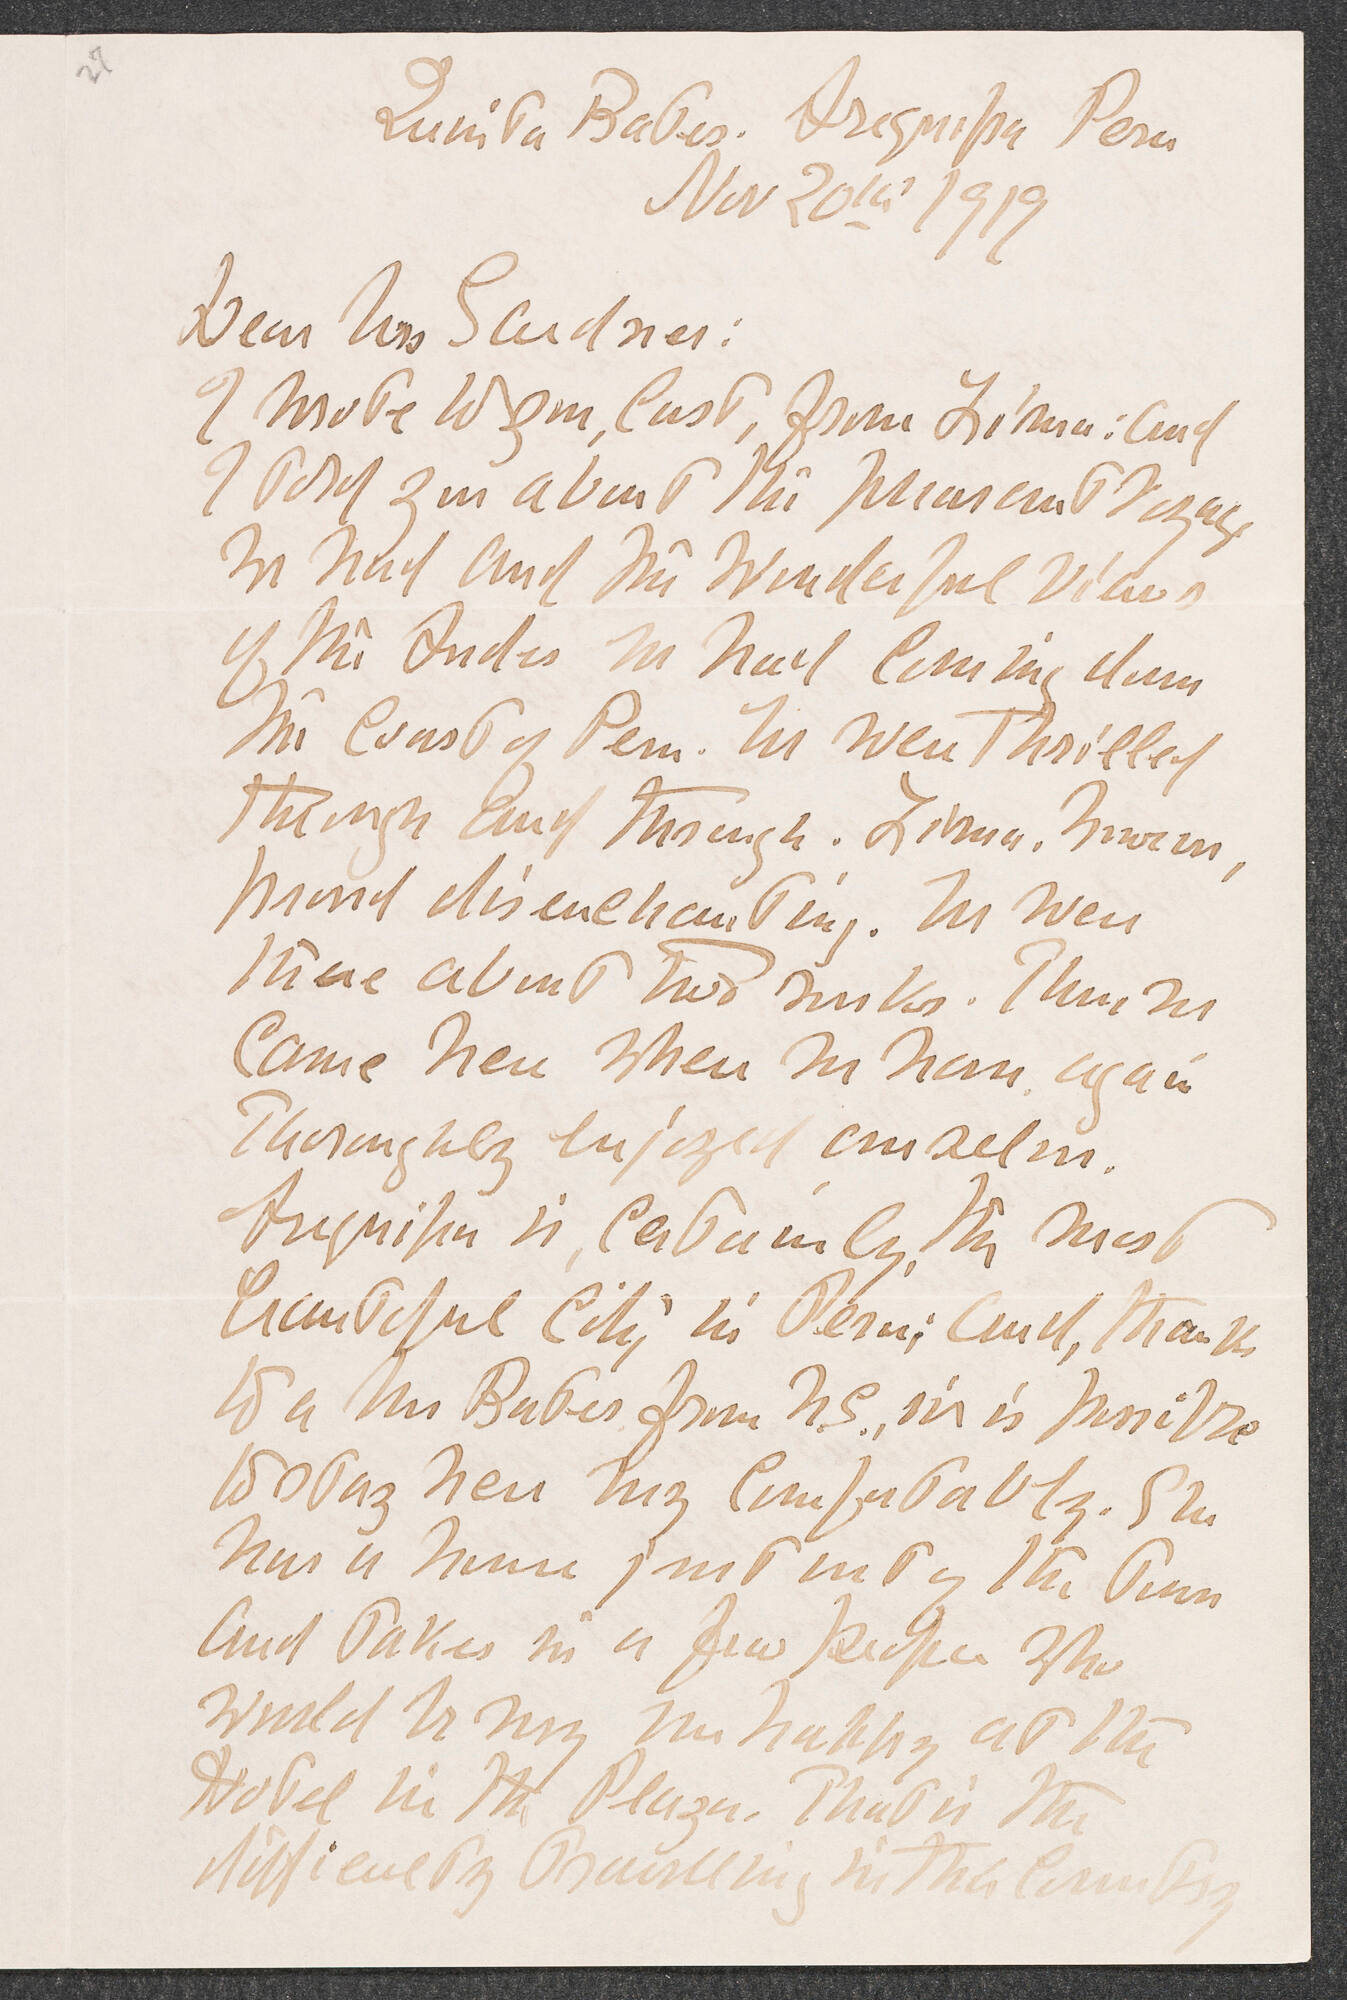 27
Quinta Bates. Arequipa Peru
Nov 20th 1919
Dear Mrs Gardner:
I wrote to you, last, from Lima: and
I told you about the pleasant voyage
we had and the wonderful views
of the Andes we had coming down
the Coast of Peru. We were thrilled
through and through. Lima, however,
proved disenchanting. We were
there about two weeks. Then we
came here where we have, again
thoroughly enjoyed ourselves.
Arequipa is, certainly, the most
beautiful City in Peru; and, thanks
to a Mrs Bates from N.S., it is possible
to stay here very comfortably. She
has a house just out of the town
and takes in a few people who
would be very unhappy at the
Hotel in the Plaza. That is the
difficulty travelling in this Country